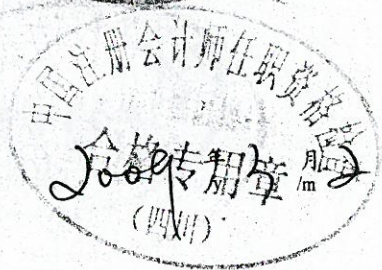 中国注册会计师任职资格检查
合格专用章
2009年 月 2
/m
(四川)